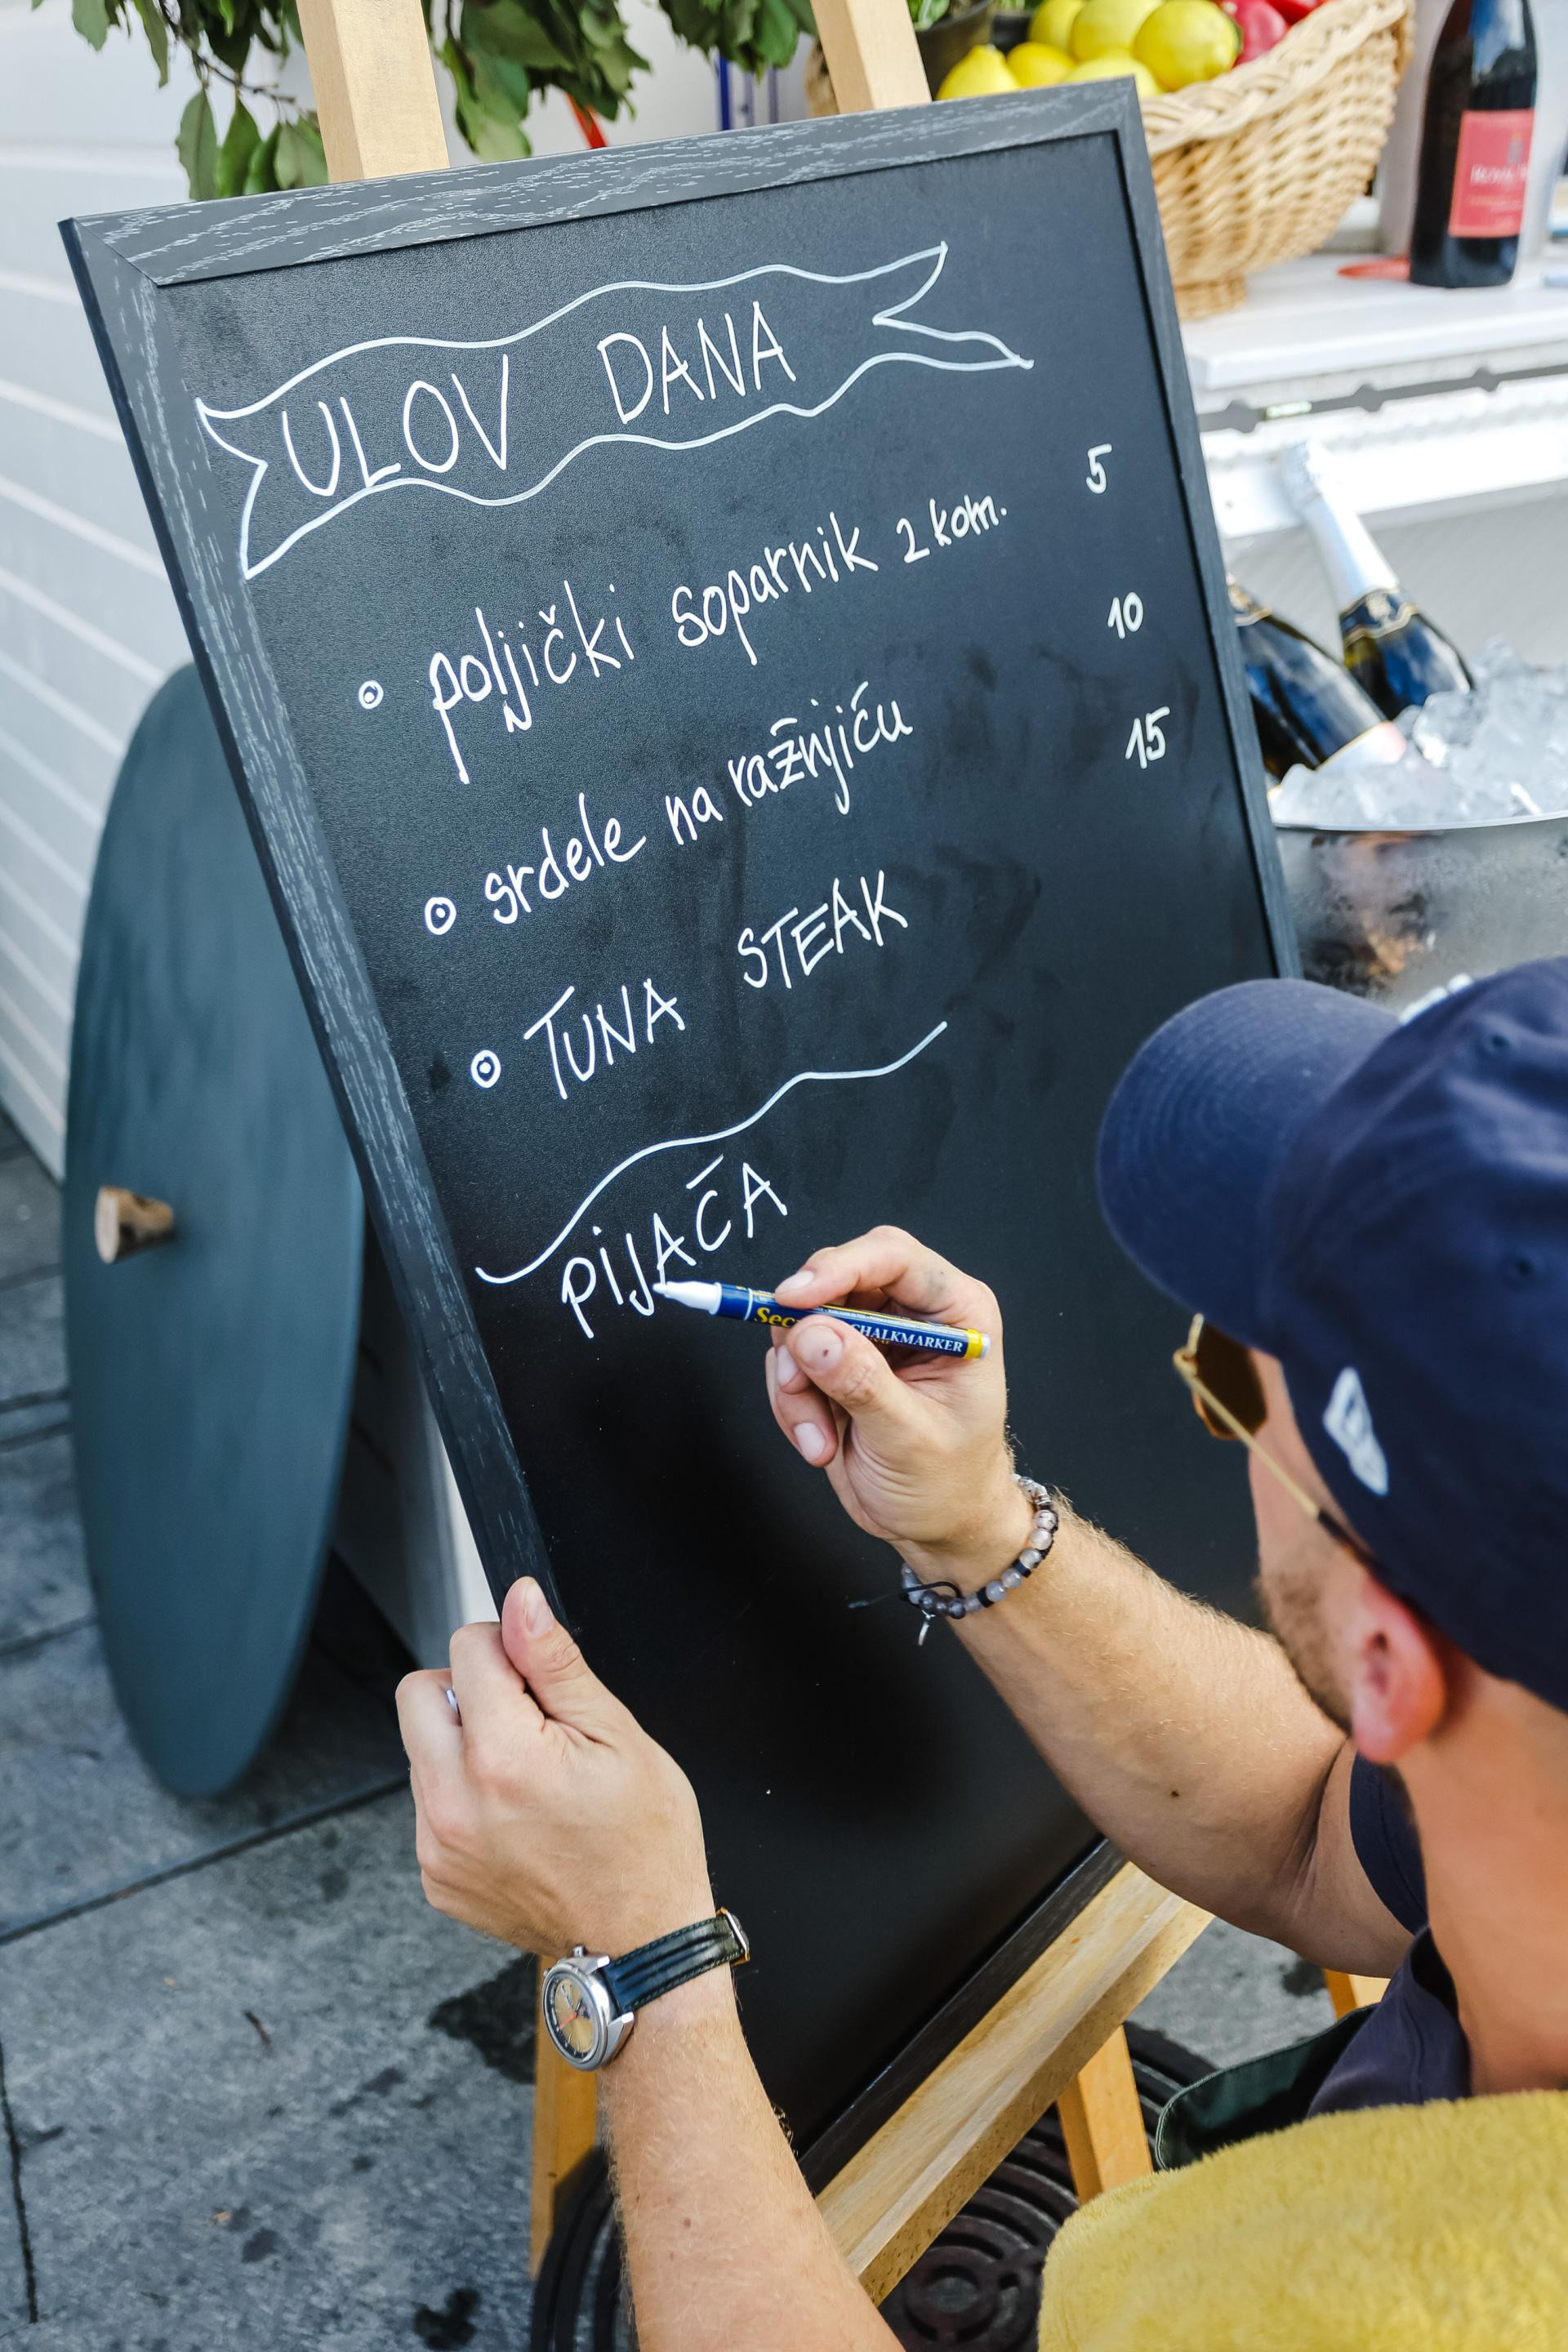 ULOV DANA
poljički soparnik 2 kom. 5
srdele na ražnjiću 10
TUNA STEAK 15
PIJAČA
CHALKMARKER